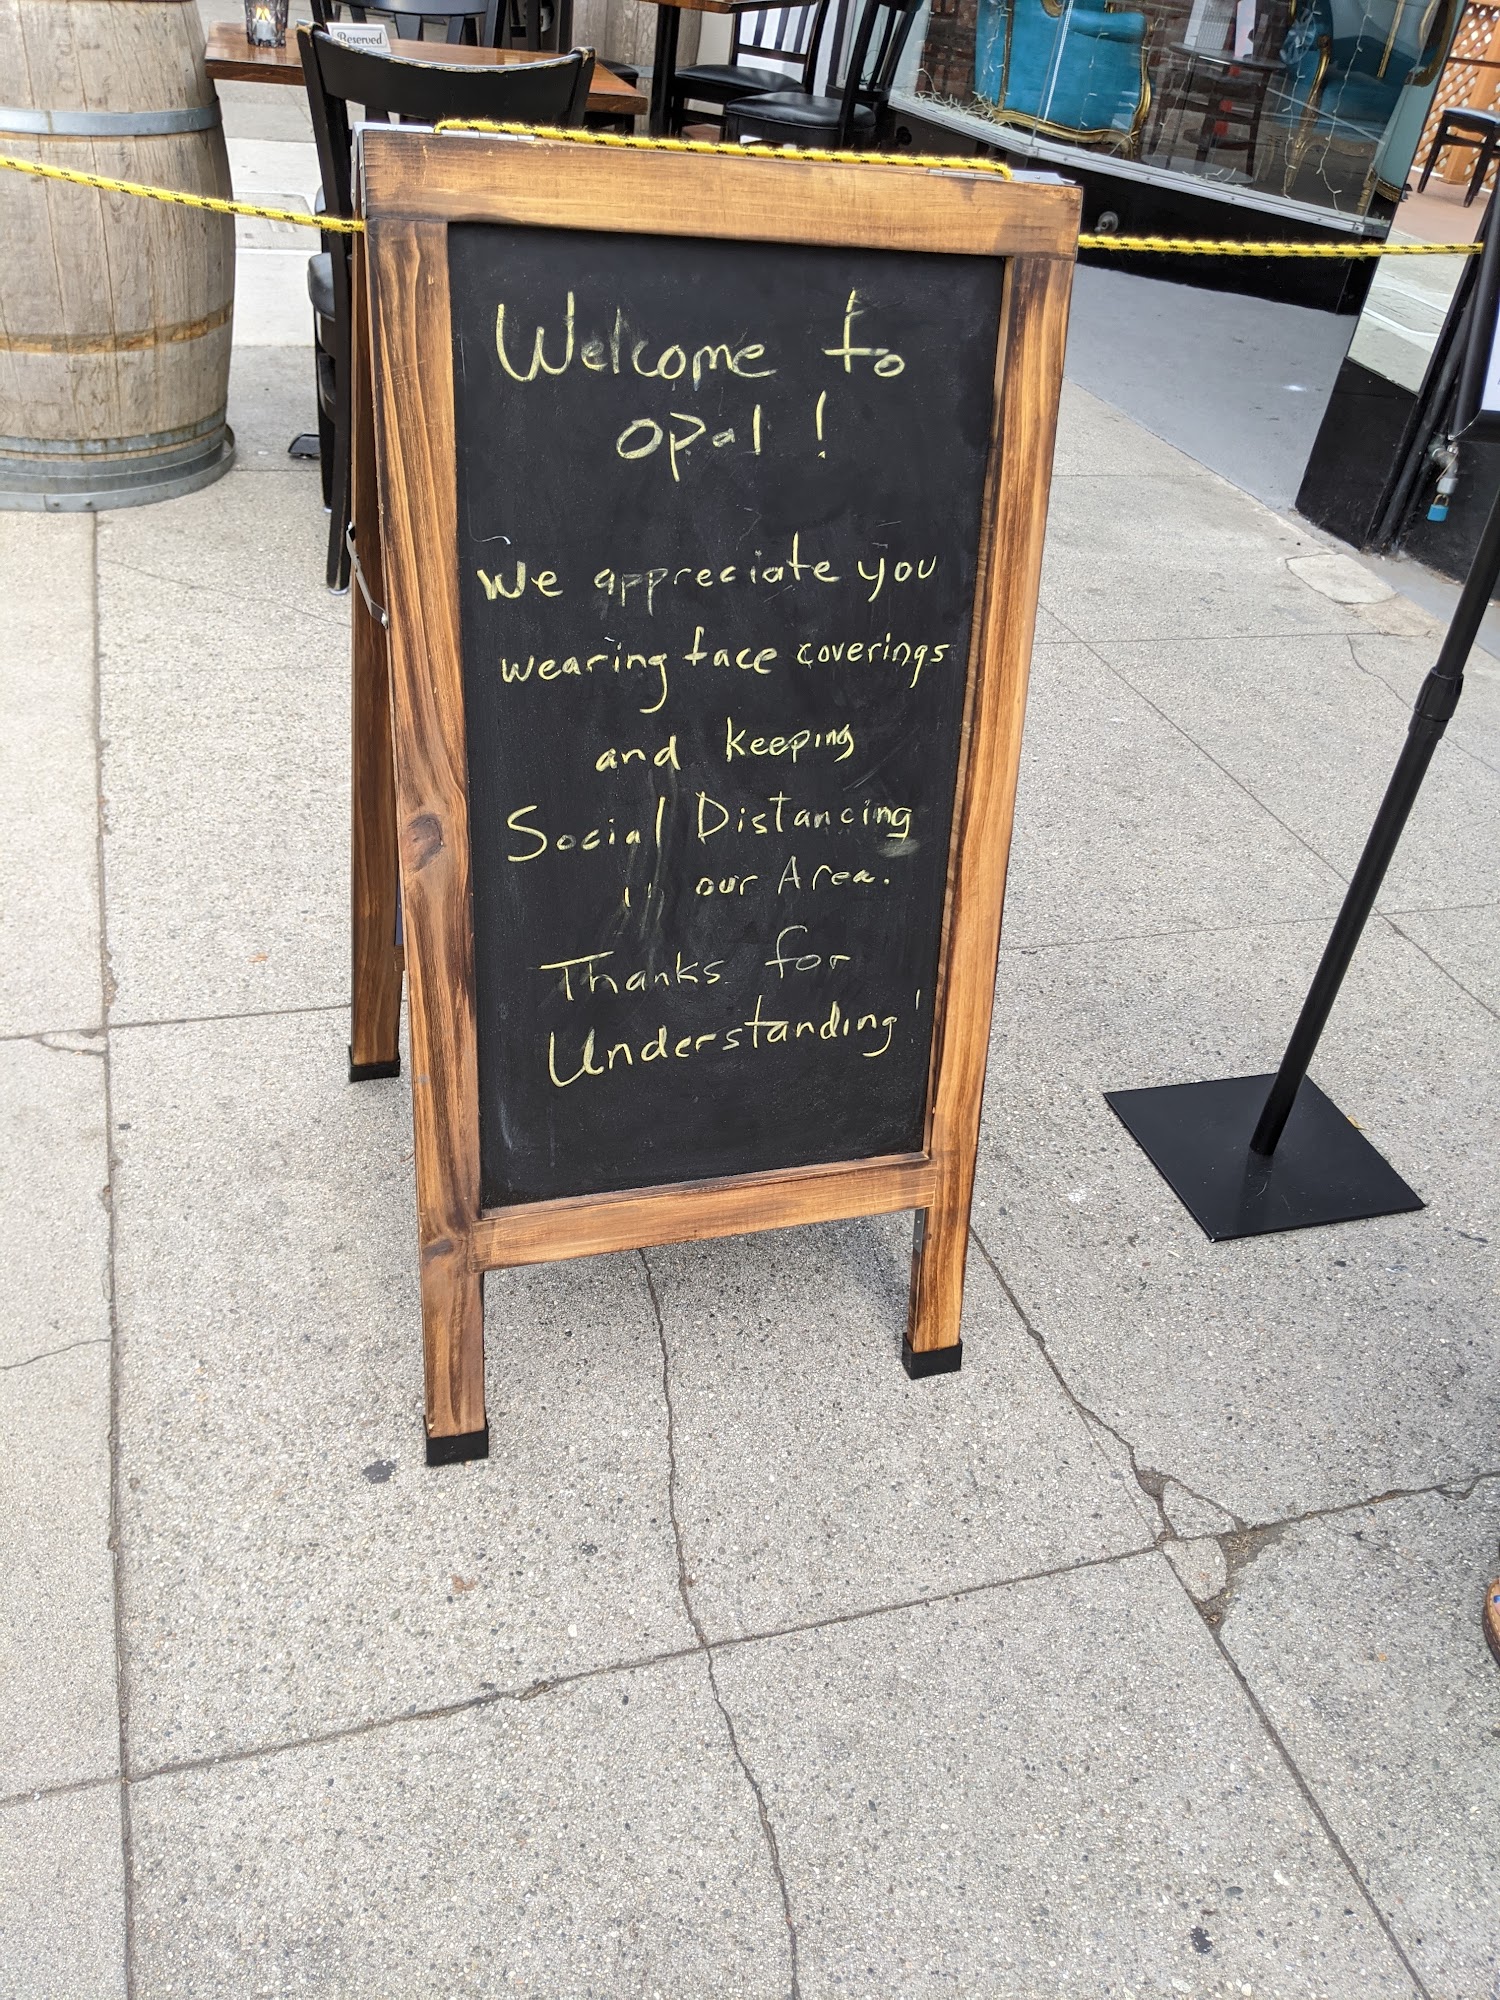 Reserved
Welcome to
opal !
We appreciate you
wearing face coverings
and keeping
Social Distancing
in our Area.
Thanks for
Understanding!